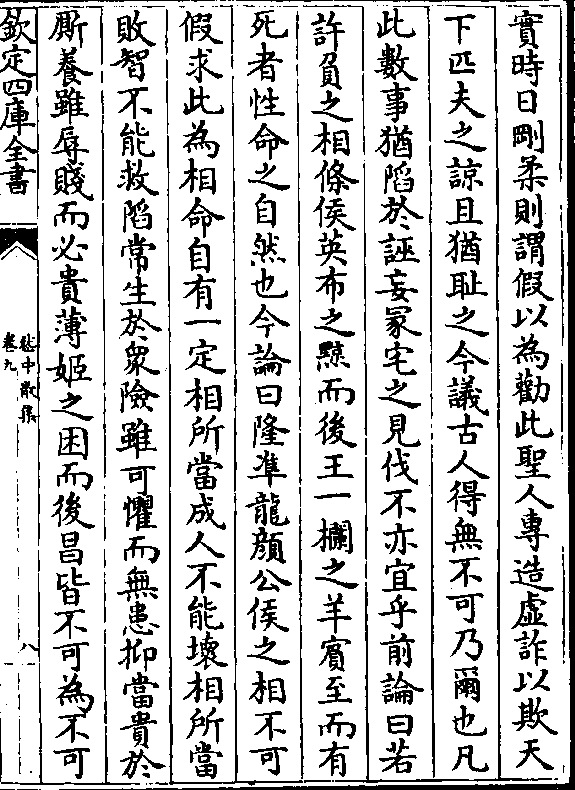 實時日剛柔則謂假以為勸此聖人專造虛詐以欺天
下匹夫之諒且猶恥之今議古人得無不可乃爾也凡
此數事猶陷於誣妄冢宅之見伐不亦宜乎前論曰若
許負之相條侯英布之黥而後王一欄之羊賓至而有
死者性命之自然也今論曰隆準龍顏公侯之相不可
假求此為相命自有一定相所當成人不能壞相所當
敗智不能救陷常生於衆險雖可懼而無患抑當貴於
厮養雖辱賤而必貴薄姬之困而後昌皆不可為不可
欽定四庫全書
嵇中散集
卷九
八